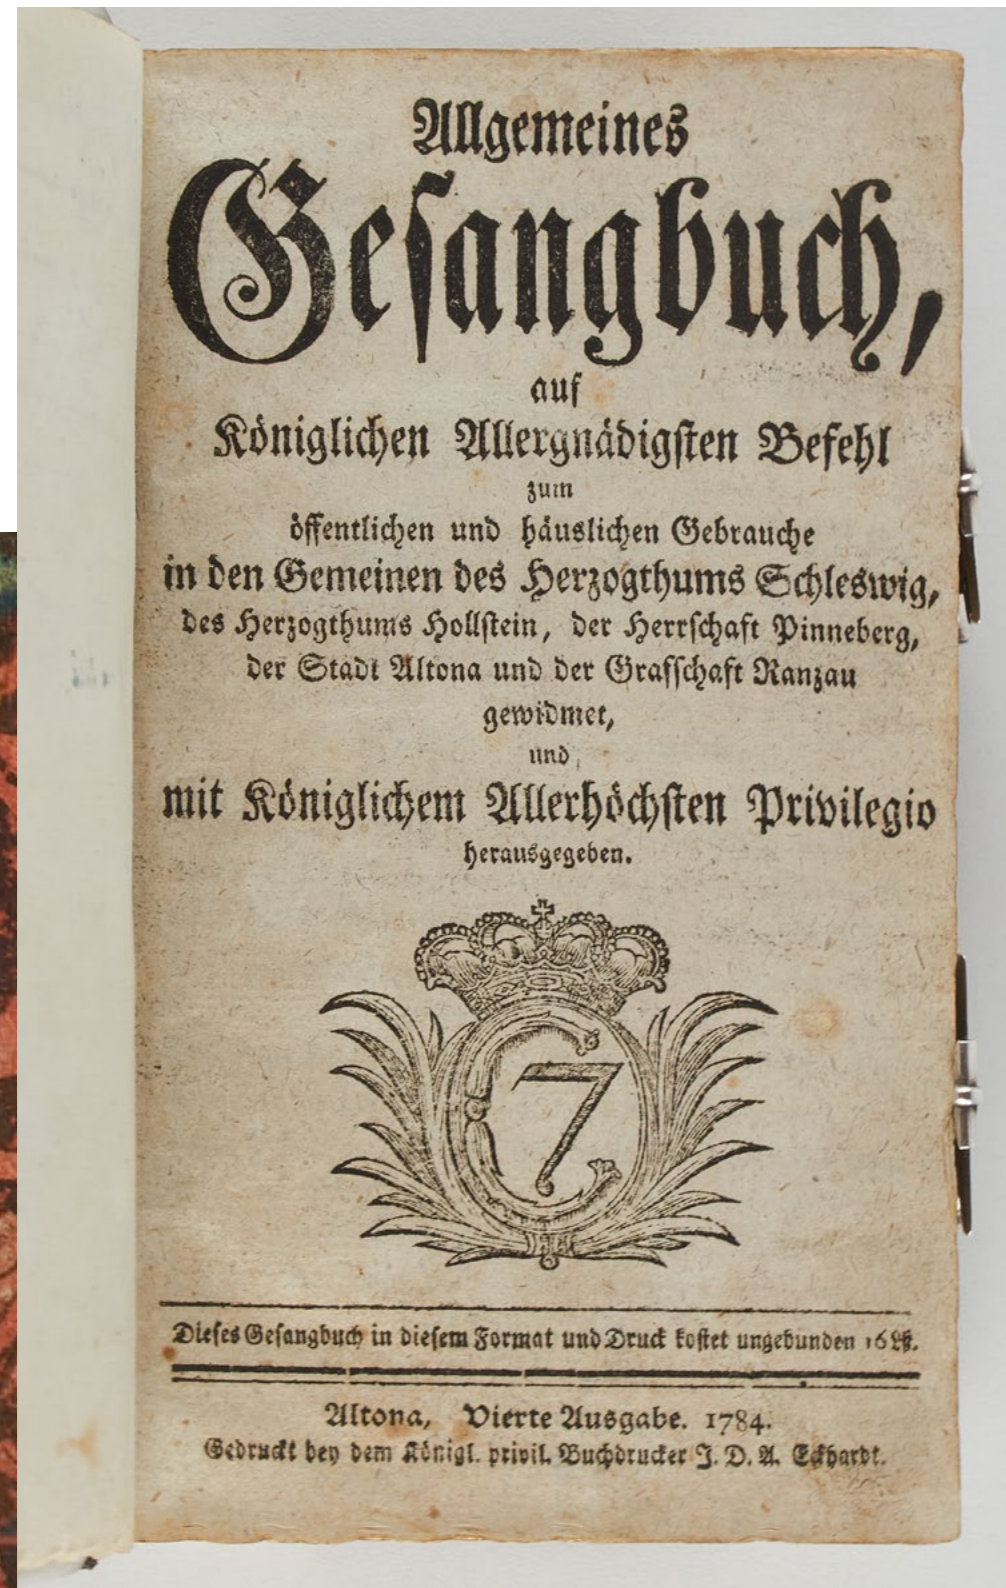 Allgemeines
Gesangbuch,
auf
Königlichen Allergnädigsten Befehl
zum
öffentlichen und häuslichen Gebrauche
in den Gemeinen des Herzogthums Schleswig,
des Herzogthums Hollstein, der Herrschaft Pinneberg,
der Stadt Altona und der Grafschaft Ranzau
gewidmet,
und
mit Königlichem Allerhöchsten Privilegio
herausgegeben.
C7
Dieses Gesangbuch in diesem Format und Druck kostet ungebunden 16 Lß.
Altona, Vierte Ausgabe. 1784.
Gedruckt bey dem Königl. privil. Buchdrucker J. D. A. Eckhardt.